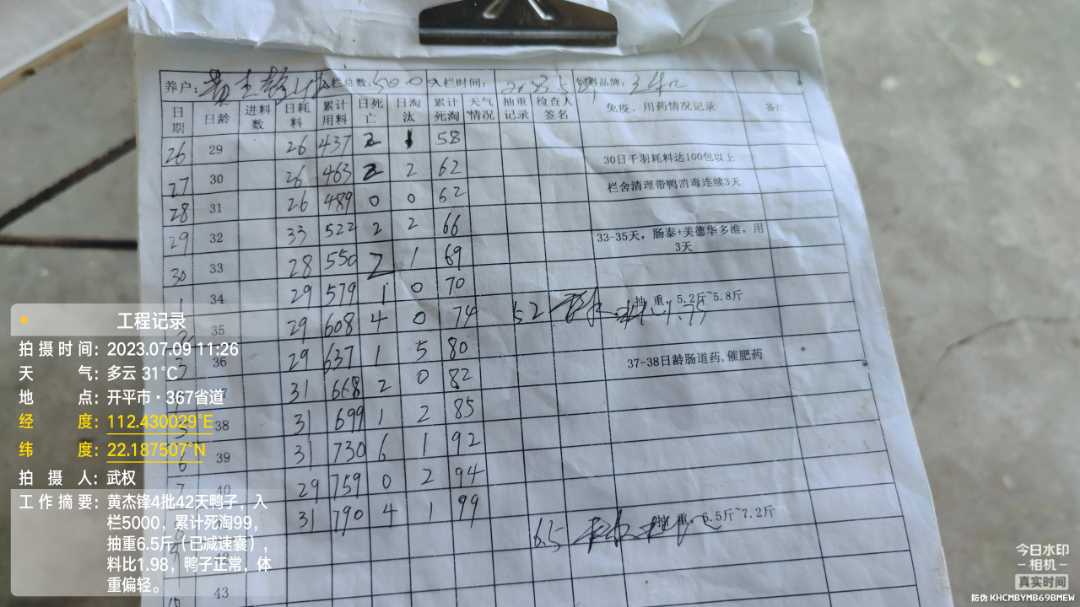 养户: 黄杰锋 栏总数: 5000 入栏时间: 料品牌:
日期 日龄 进料数 日耗料 累计用料 日死亡 日淘汰 累计死淘 天气情况 抽重记录 检查人签名 免疫、用药情况记录 备注
26 29 26 437 2 1 58
27 30 26 463 2 2 62 30日千羽耗料达100包以上
28 31 26 489 0 0 62 栏舍清理带鸭消毒连续3天
29 32 33 522 2 2 66
30 33 28 550 2 1 69 33-35天，肠泰+美德华多维，用3天
1 34 29 579 1 0 70
35 29 608 4 0 74 5.2 抽重 5.2斤~5.8斤
36 29 637 1 5 80
31 668 2 0 82 37-38日龄肠道药,催肥药
38 31 699 1 2 85
6 39 31 730 6 1 92
7 29 759 0 2 94
31 790 4 1 99
6.5 6.5斤~7.2斤
43
工程记录
拍摄时间: 2023.07.09 11:26
天气: 多云 31℃
地点: 开平市·367省道
经度: 112.430029°E
纬度: 22.187507°N
拍摄人: 武权
工作摘要: 黄杰锋4批42天鸭子，入
栏5000，累计死淘99，
抽重6.5斤（已减速囊），
料比1.98，鸭子正常，体
重偏轻。
今日水印
相机
真实时间
防伪 KHCMBYMB69BMEW